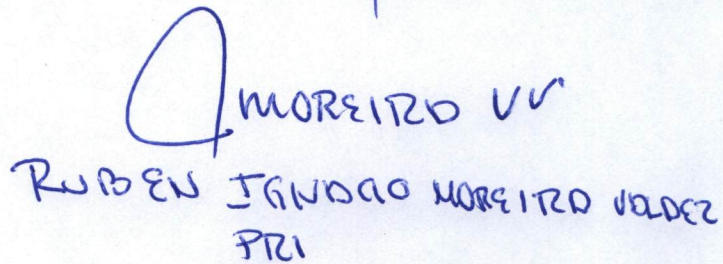 MOREIRA VV
RUBEN IGNACIO MOREIRA VALDEZ
PRI